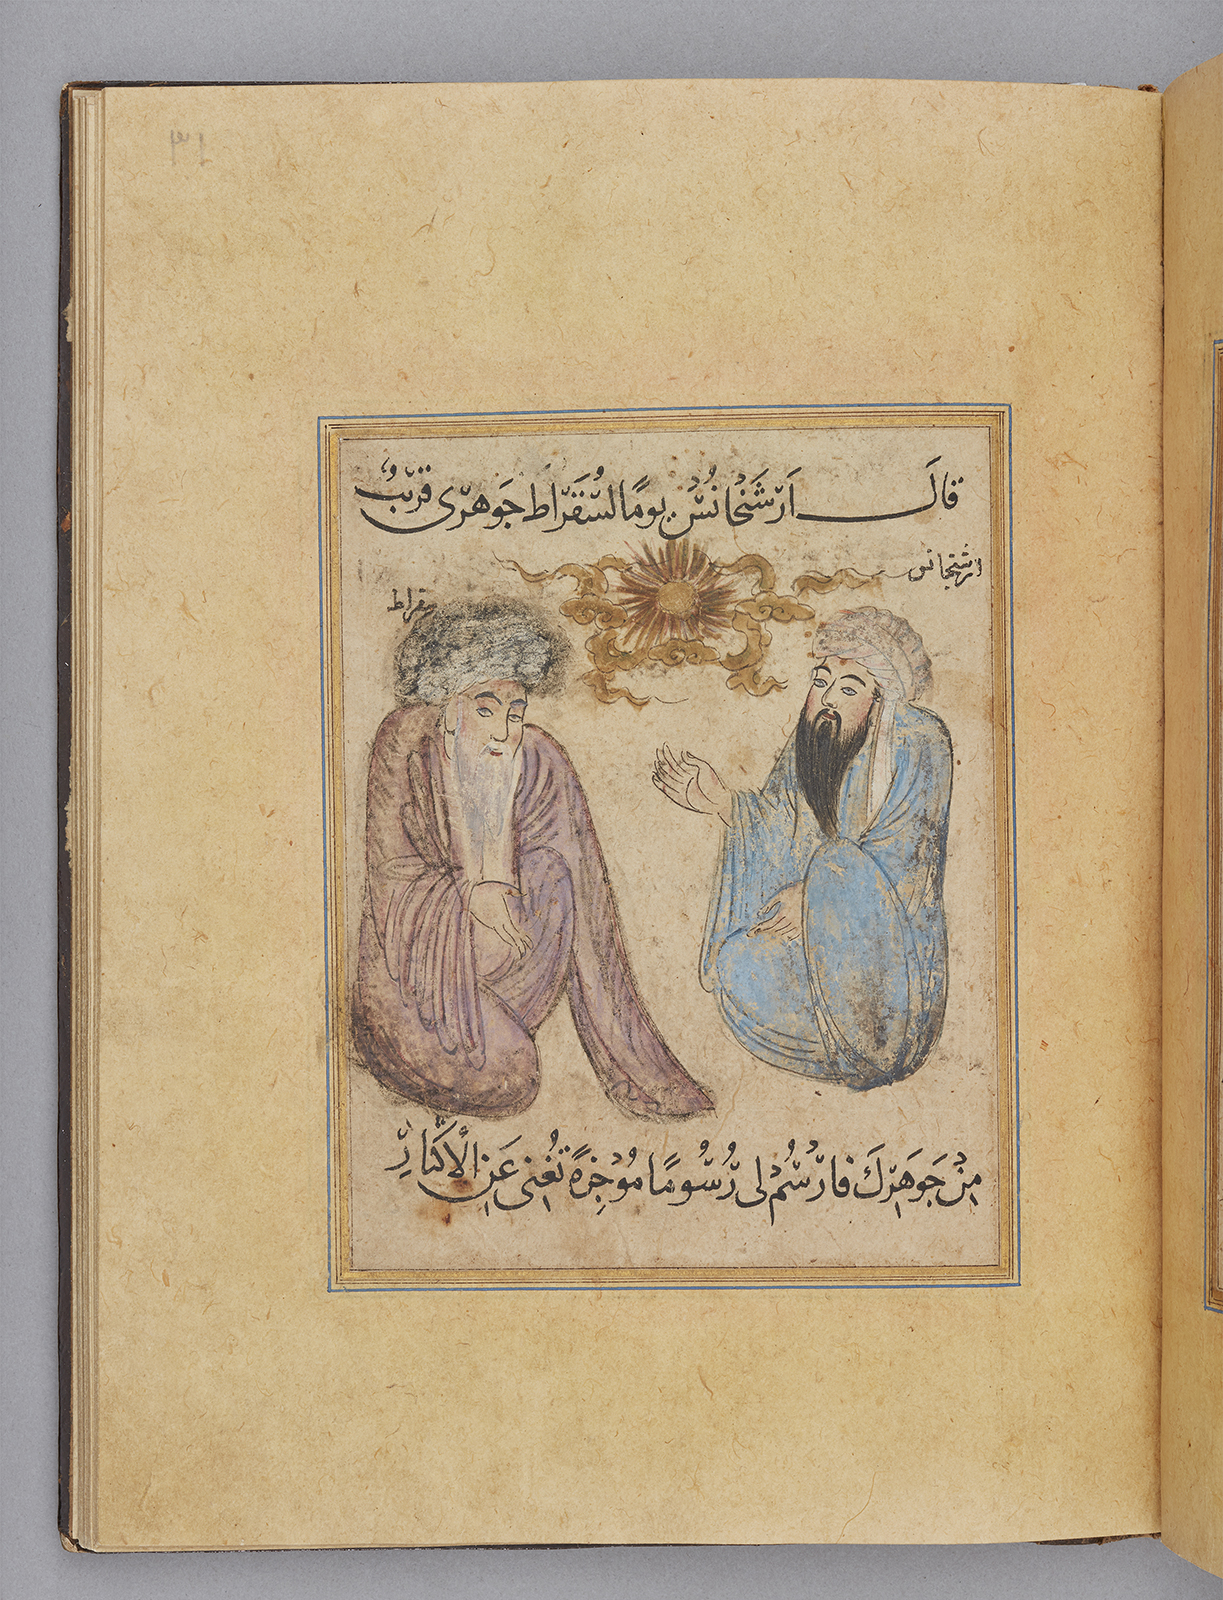 ٣١
قَالَ اَرْشَنْجَانُسْ يومًا لسُّقَرَاط جَوهَرى قَرِيبٌ
ارشنجانس
سقراط
مِنْ جَوهَرِكَ فارْسُمْ لى رُسُومًا مُوْجِزةً تُغْنِى عَنِ الْاكْثَارِ